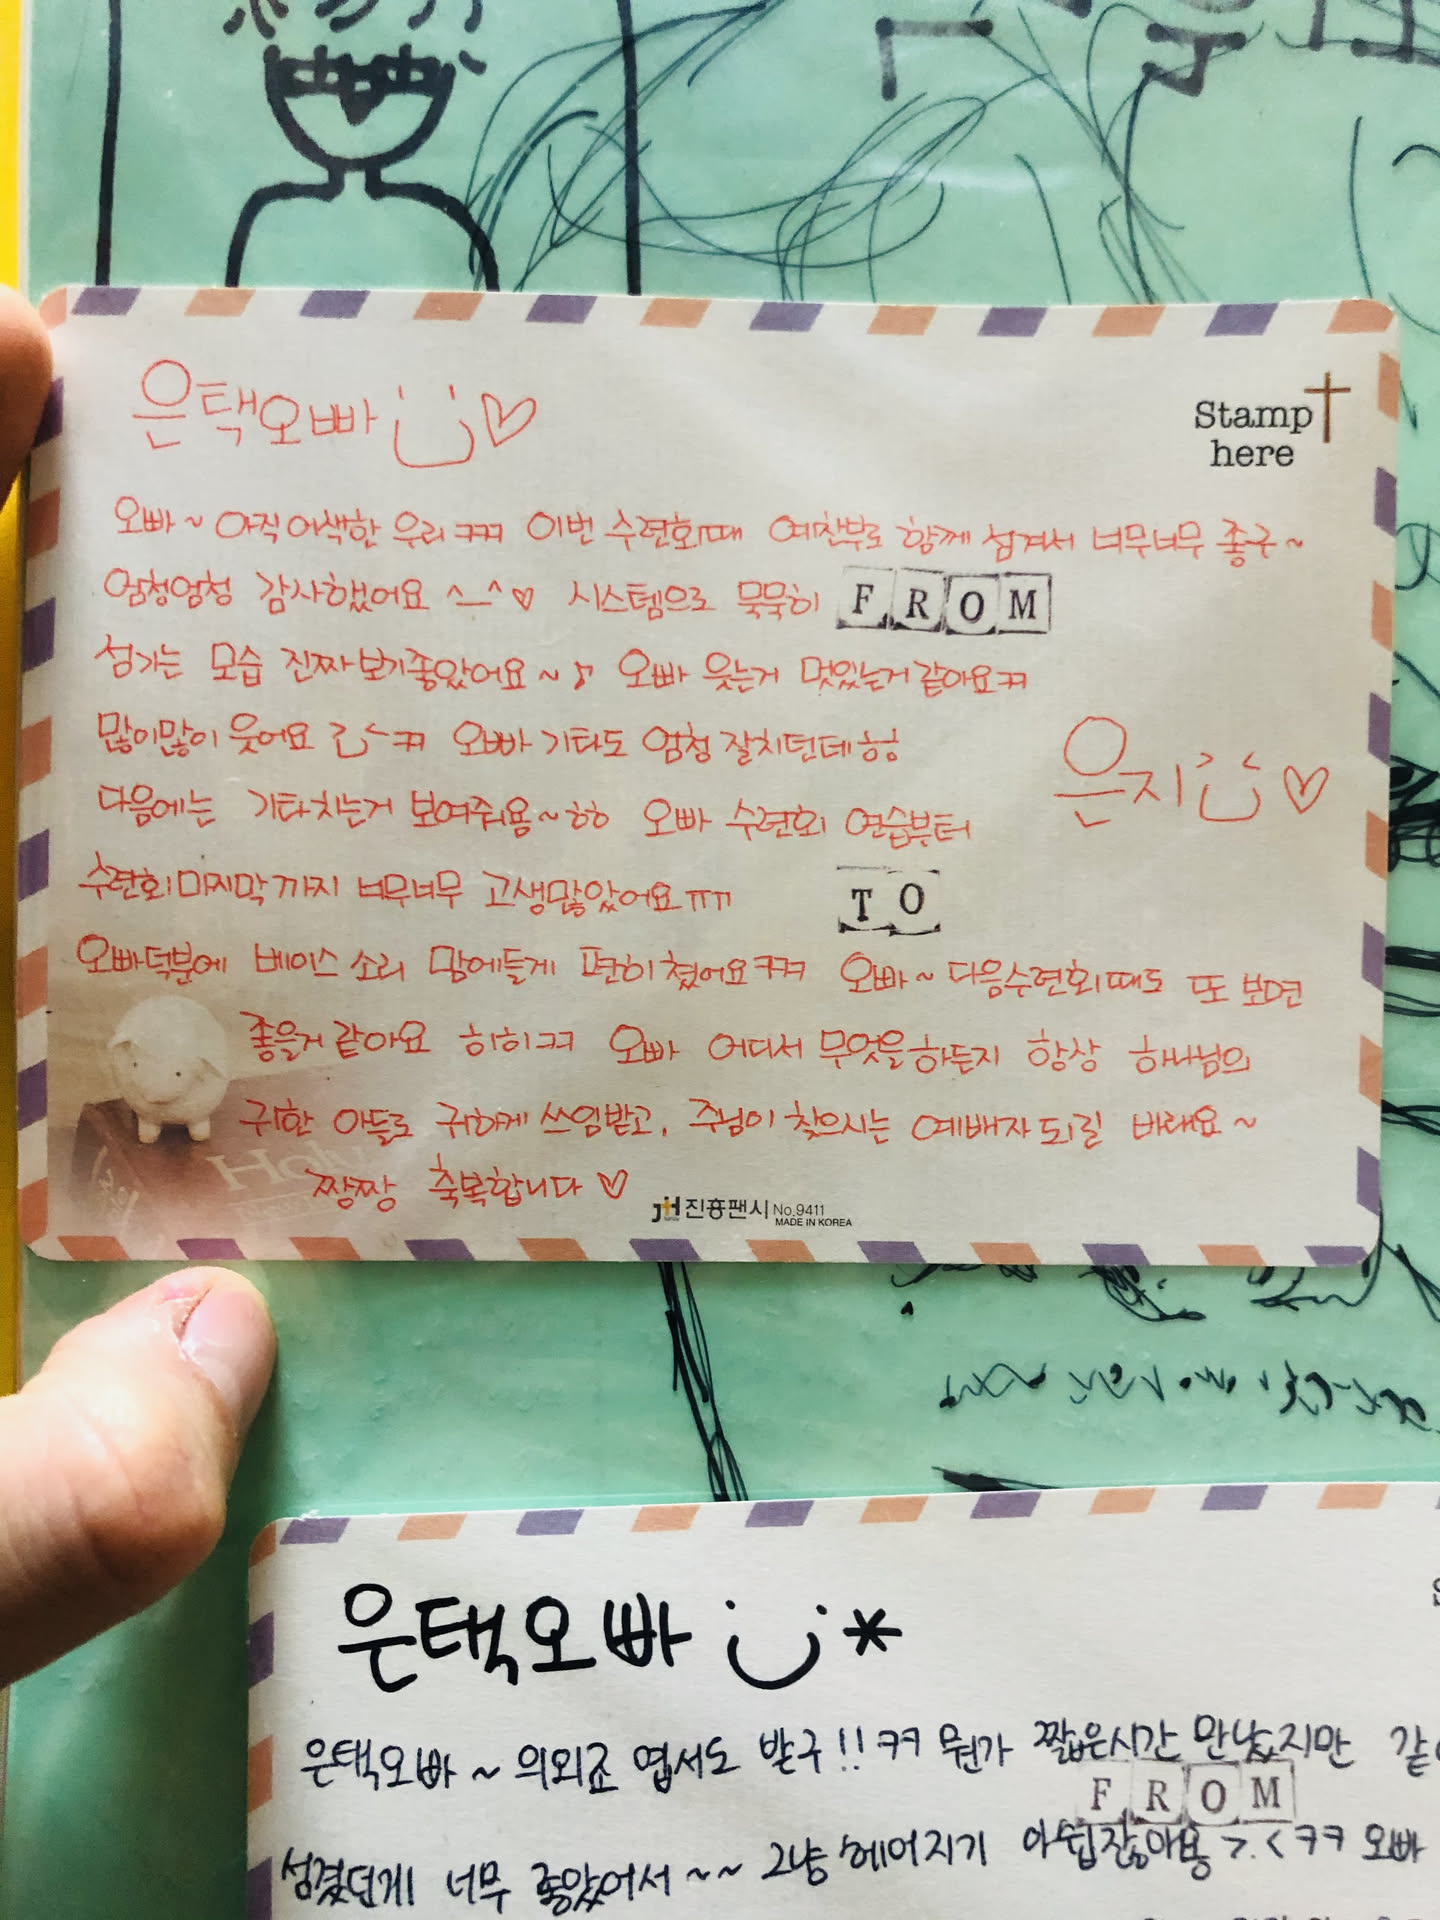 은택오빠
Stamp
here
오빠~ 아직 어색한 우리 ㅋㅋㅋ 이번 수련회때 예찬부로 함께 섬겨서 너무너무 좋구~
엄청엄청 감사했어요 ^_^♡ 시스템으로 묵묵히
FROM
섬기는 모습 진짜 보기좋았어요~♪ 오빠 웃는거 멋있는거같아요ㅋㅋ
많이많이 웃어요 ㅋㅋ 오빠 기타도 엄청 잘치던데ㅎㅎ
은지
다음에는 기타치는거 보여줘용~ㅎㅎ 오빠 수련회 연습부터
수련회 마지막까지 너무너무 고생많았어요ㅠㅠ
TO
오빠덕분에 베이스 소리 맘에들게 편히 쳤어요ㅋㅋㅋ 오빠~ 다음수련회때도 또 보면
좋을거 같아요 히히ㅋㅋ 오빠 어디서 무엇을하든지 항상 하나님의
귀한 아들로 귀하게 쓰임받고, 주님이 찾으시는 예배자 되길 바래요~
짱짱 축복합니다 ♡
진흥팬시 No.9411
MADE IN KOREA
은택오빠 *
은택오빠~ 의외죠 엽서도 받구!! ㅋㅋ 뭔가 짧은시간 만났지만
FROM
섬겼던게 너무 좋았어서~~ 그냥 헤어지기 아쉽잖아용 >.< ㅋㅋ 오빠